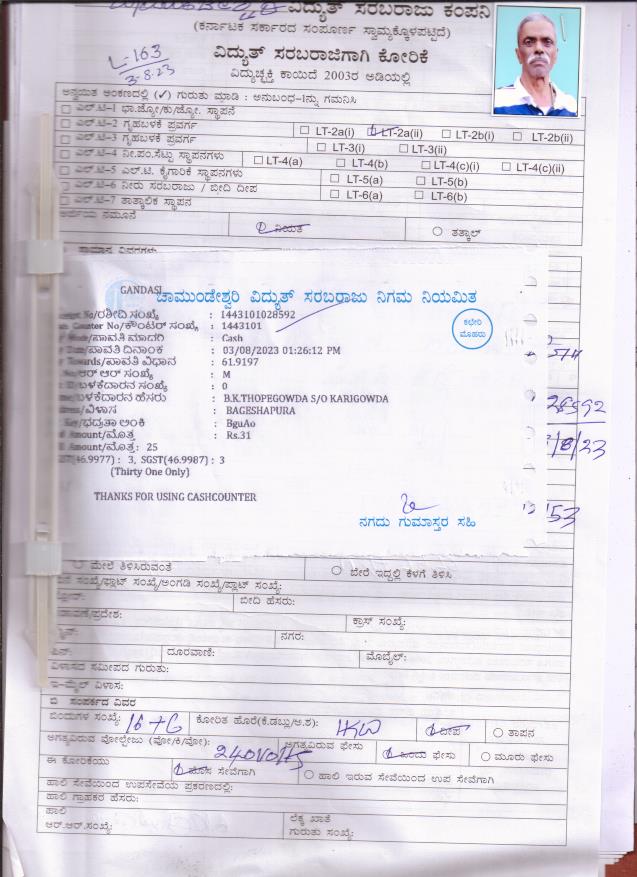 ವಿದ್ಯುತ್ ಸರಬರಾಜು ಕಂಪನಿ
(ಕರ್ನಾಟಕ ಸರ್ಕಾರದ ಸಂಪೂರ್ಣ ಸ್ವಾಮ್ಯಕ್ಕೊಳಪಟ್ಟಿದೆ)
L-163
3-8-23
ವಿದ್ಯುತ್ ಸರಬರಾಜಿಗಾಗಿ ಕೋರಿಕೆ
ವಿದ್ಯುಚ್ಛಕ್ತಿ ಕಾಯಿದೆ 2003ರ ಅಡಿಯಲ್ಲಿ
ಅನ್ವಯಿತ ಅಂಕಣದಲ್ಲಿ (✓) ಗುರುತು ಮಾಡಿ : ಅನುಬಂಧ-1ನ್ನು ಗಮನಿಸಿ
ಎಲ್.ಟಿ-1 ಭಾ.ಜ್ಯೋ/ಕು/ಜ್ಯೋ. ಸ್ಥಾಪನೆ
ಎಲ್.ಟಿ-2 ಗೃಹಬಳಕೆ ಪ್ರವರ್ಗ LT-2a(i) LT-2a(ii) LT-2b(i) LT-2b(ii)
ಎಲ್.ಟಿ-3 ಗೃಹಬಳಕೆ ಪ್ರವರ್ಗ LT-3(i) LT-3(ii)
ಎಲ್.ಟಿ-4 ನೀ.ಪಂ.ಸೆಟ್ಟು ಸ್ಥಾಪನಗಳು LT-4(a) LT-4(b) LT-4(c)(i) LT-4(c)(ii)
ಎಲ್.ಟಿ-5 ಎಲ್.ಟಿ. ಕೈಗಾರಿಕೆ ಸ್ಥಾಪನಗಳು LT-5(a) LT-5(b)
ಎಲ್.ಟಿ-6 ನೀರು ಸರಬರಾಜು / ಬೀದಿ ದೀಪ LT-6(a) LT-6(b)
ಎಲ್.ಟಿ-7 ತಾತ್ಕಾಲಿಕ ಸ್ಥಾಪನ
ಅರ್ಜಿಯ ನಮೂನೆ ನಿಯತ ತತ್ಕಾಲ್
GANDASI
ಚಾಮುಂಡೇಶ್ವರಿ ವಿದ್ಯುತ್ ಸರಬರಾಜು ನಿಗಮ ನಿಯಮಿತ
No/ರಶೀದಿ ಸಂಖ್ಯೆ : 1443101028592
Counter No/ಕೌಂಟರ್ ಸಂಖ್ಯೆ : 1443101
ಕಛೇರಿ ಮೊಹರು
/ಪಾವತಿ ಮಾದರಿ : Cash
/ಪಾವತಿ ದಿನಾಂಕ : 03/08/2023 01:26:12 PM
Towards/ಪಾವತಿ ವಿಧಾನ : 61.9197
/ಆರ್ ಆರ್ ಸಂಖ್ಯೆ : M
/ಬಳಕೆದಾರನ ಸಂಖ್ಯೆ : 0
/ಬಳಕೆದಾರನ ಹೆಸರು : B.K.THOPEGOWDA S/O KARIGOWDA
/ವಿಳಾಸ : BAGESHAPURA
28592
/ಭದ್ರತಾ ಅಂಕಿ : BguAo
Amount/ಮೊತ್ತ : Rs.31
/8/23
Amount/ಮೊತ್ತ: 25
(46.9977) : 3, SGST(46.9987) : 3
(Thirty One Only)
THANKS FOR USING CASHCOUNTER
53
ನಗದು ಗುಮಾಸ್ತರ ಸಹಿ
ಮೇಲೆ ತಿಳಿಸಿರುವಂತೆ ಬೇರೆ ಇದ್ದಲ್ಲಿ ಕೆಳಗೆ ತಿಳಿಸಿ
ಸಂಖ್ಯೆ/ಫ್ಲಾಟ್ ಸಂಖ್ಯೆ/ಅಂಗಡಿ ಸಂಖ್ಯೆ/ಪ್ಲಾಟ್ ಸಂಖ್ಯೆ:
ಬೀದಿ ಹೆಸರು:
ಕ್ರಾಸ್ ಸಂಖ್ಯೆ:
ನಗರ:
ಪಿನ್: ದೂರವಾಣಿ: ಮೊಬೈಲ್:
ವಿಳಾಸದ ಸಮೀಪದ ಗುರುತು:
ಇ-ಮೈಲ್ ವಿಳಾಸ:
ಬಿ ಸಂಪರ್ಕದ ವಿವರ
ಬಿಂದುಗಳ ಸಂಖ್ಯೆ: 16+6 ಕೋರಿತ ಹೊರೆ(ಕೆ.ಡಬ್ಲು/ಅ.ಶ): 1KW ದೀಪ ತಾಪನ
ಅಗತ್ಯವಿರುವ ವೋಲ್ಟೇಜು (ವೋ/ಕಿ/ವೋ): 240Volts ಅಗತ್ಯವಿರುವ ಫೇಸು ಒಂದು ಫೇಸು ಮೂರು ಫೇಸು
ಈ ಕೋರಿಕೆಯು ಹೊಸ ಸೇವೆಗಾಗಿ ಹಾಲಿ ಇರುವ ಸೇವೆಯಿಂದ ಉಪ ಸೇವೆಗಾಗಿ
ಹಾಲಿ ಸೇವೆಯಿಂದ ಉಪಸೇವೆಯ ಪ್ರಕರಣದಲ್ಲಿ:
ಹಾಲಿ ಗ್ರಾಹಕರ ಹೆಸರು:
ಹಾಲಿ ಲೆಕ್ಕ ಖಾತೆ
ಆರ್.ಆರ್.ಸಂಖ್ಯೆ: ಗುರುತು ಸಂಖ್ಯೆ: